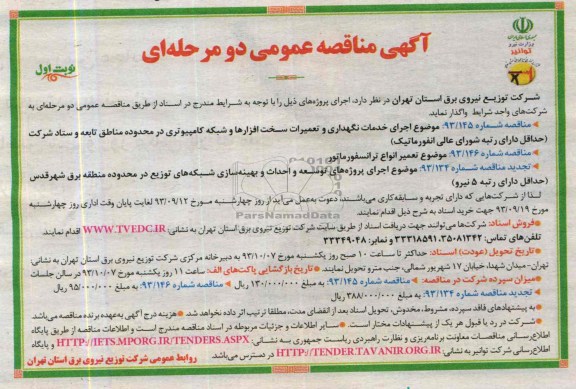 آگهی مناقصه عمومی دو مرحله‌ای
نوبت اول
توانیر
شرکت توزیع نیروی برق استان تهران در نظر دارد، اجرای پروژه‌های ذیل را با توجه به شرایط مندرج در اسناد از طریق مناقصه عمومی دو مرحله‌ای به
شرکت‌های واجد شرایط واگذار نماید.
مناقصه شماره ۹۳/۱۴۵: موضوع اجرای خدمات نگهداری و تعمیرات سخت افزارها و شبکه کامپیوتری در محدوده مناطق تابعه و ستاد شرکت
(حداقل دارای رتبه شورای عالی انفورماتیک)
مناقصه شماره ۹۳/۱۴۶: موضوع تعمیر انواع ترانسفورماتور
تجدید مناقصه شماره ۹۳/۱۳۴: موضوع اجرای پروژه‌های توسعه و احداث و بهینه‌سازی شبکه‌های توزیع در محدوده منطقه برق شهرقدس
(حداقل دارای رتبه ۵ نیرو)
لذا از شرکت‌هایی که دارای تجربه و سابقه‌کاری می‌باشند، دعوت به‌عمل می‌آید از روز چهارشنبه مورخ ۹۳/۰۹/۱۲ لغایت پایان وقت اداری روز چهارشنبه
مورخ ۹۳/۰۹/۱۹ جهت خرید اسناد به شرح ذیل اقدام نمایند.
فروش اسناد: شرکت‌ها می‌توانند جهت دریافت اسناد از طریق سایت شرکت توزیع نیروی برق استان تهران به نشانی: WWW.TVEDC.IR اقدام نمایند.
تلفن‌های تماس: ۸۱۳۴۲-۳۵و۳۳۳۱۸۵۹۱ و نمابر: ۳۳۳۴۹۰۴۸
تاریخ تحویل (عودت) اسناد: حداکثر تا ساعت ۱۰ صبح روز یکشنبه مورخ ۹۳/۱۰/۰۷ به دبیرخانه مرکزی شرکت توزیع نیروی برق استان تهران به نشانی:
تهران - میدان شهدا، خیابان ۱۷ شهریور شمالی، جنب مترو تحویل نمایند. تاریخ بازگشایی پاکت‌های الف: ساعت ۱۱ روز یکشنبه مورخ ۹۳/۱۰/۰۷ در سالن جلسات
میزان سپرده شرکت در مناقصه: مناقصه شماره ۹۳/۱۴۵: به مبلغ ۱۳۰/۰۰۰/۰۰۰ ریال مناقصه شماره ۹۳/۱۴۶: به مبلغ ۹۵/۰۰۰/۰۰۰ ریال
تجدید مناقصه شماره ۹۳/۱۳۴: به مبلغ ۳۸۸/۰۰۰/۰۰۰ ریال
به پیشنهادهای فاقد سپرده، مشروط، مخدوش، تحویل اسناد بعد از انقضای مدت، مطلقا ترتیب اثر داده نخواهد شد. هزینه درج آگهی به‌عهده برنده مناقصه می‌باشد
شرکت در رد یا قبول هر یک از پیشنهادات مختار است. سایر اطلاعات و جزئیات مربوطه در اسناد مناقصه مندرج است و اطلاعات مناقصه از طریق پایگاه
اطلاع‌رسانی مناقصات معاونت برنامه‌ریزی و نظارت راهبردی ریاست جمهوری به نشانی: HTTP://IETS.MPORG.IR/TENDERS.ASPX و پایگاه
اطلاع‌رسانی شرکت توانیر به نشانی: HTTP://TENDER.TAVANIR.ORG.IR در دسترس می‌باشد.
روابط عمومی شرکت توزیع نیروی برق استان تهران
ParsNamadData